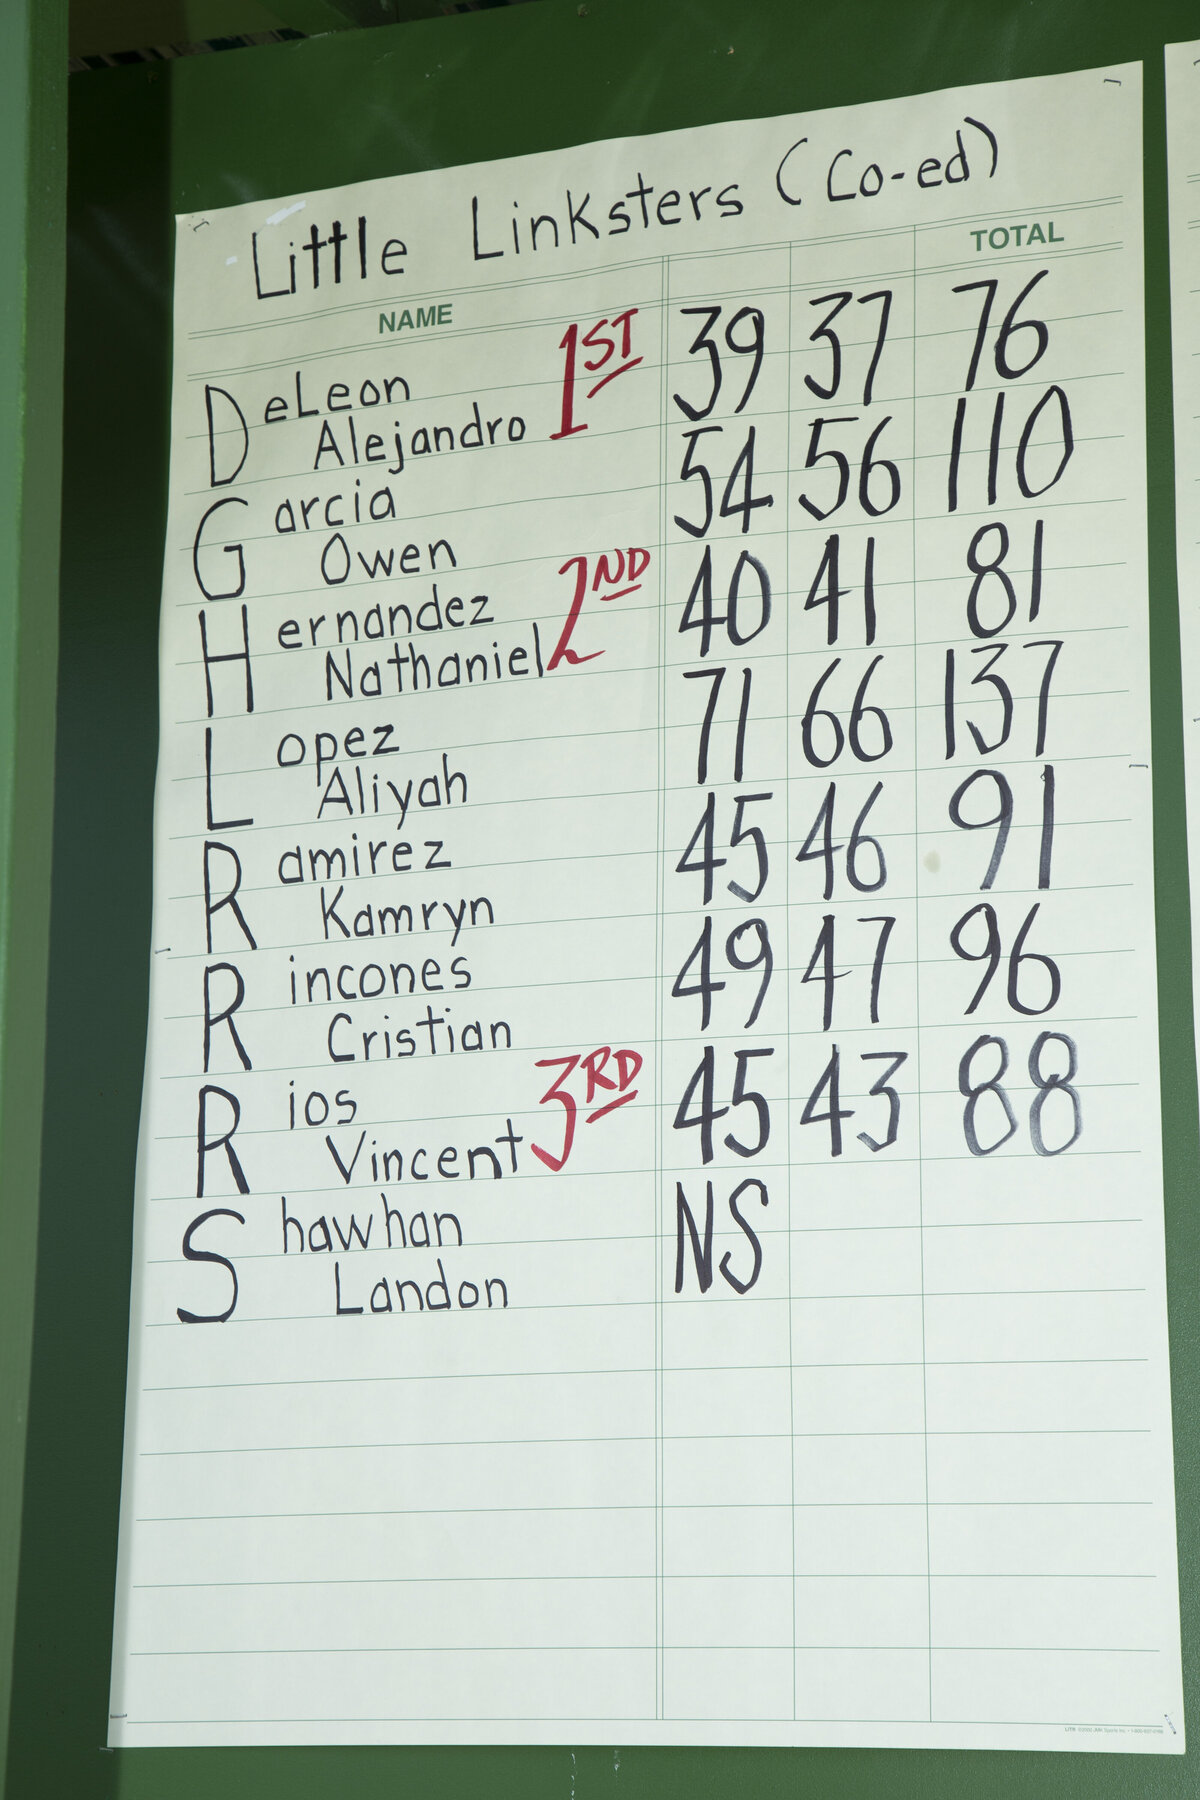 Little Linksters (Co-ed)
NAME TOTAL
DeLeon Alejandro 1ST 39 37 76
Garcia Owen 54 56 110
Hernandez Nathaniel 2ND 40 41 81
Lopez Aliyah 71 66 137
Ramirez Kamryn 45 46 91
Rincones Cristian 49 47 96
Rios Vincent 3RD 45 43 88
Shawhan Landon NS